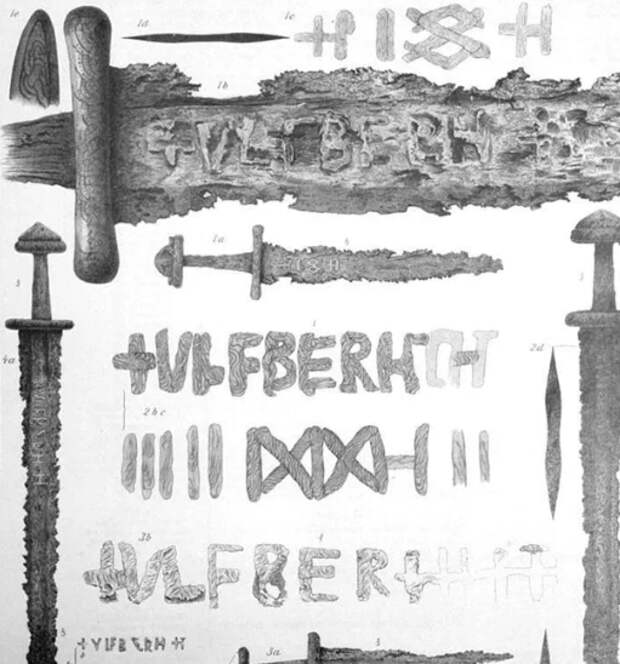 1e 1d 1c
1b
+VLFBERH
1a
4a
+VLFBERH
2d
2bc
3b
+VLFBER
+VLFBERH+
3a